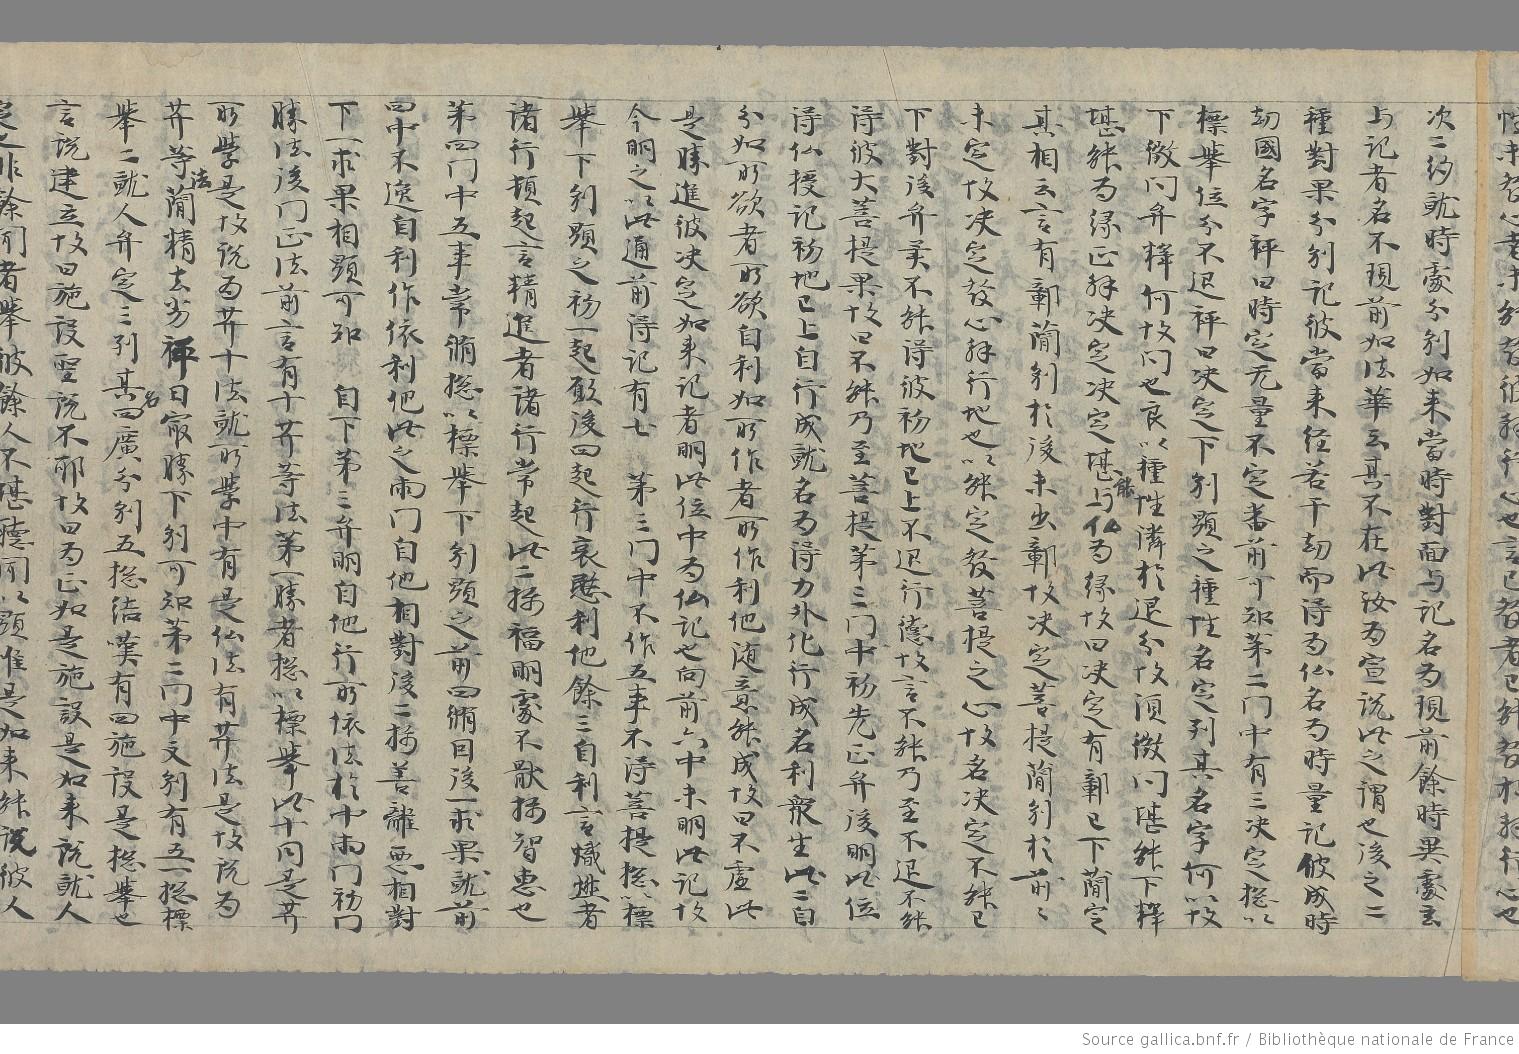 次二約就時處分別如来當時對面与記名為現前餘時異處玄
与記者名不現前如法華云其不在此汝為宣說此之謂也後之二
種對果分別記彼當来経若干劫而得為仏名為時量記彼成時
劫國名字釋曰時定无量不定番前可知第二門中有三决定惣以
標舉位分不退釋曰决定下別顕之種性名定列其名字何以故
下徴問弁釋何故問也良以種性隣於退分故須徴問堪能下釋
堪能為縁正釋决定决定堪能与仏為縁故曰决定有鄣已下蘭定
其相云言有鄣蘭別於後未出鄣故决定菩提蘭別於前々
未定故决定發心釋行地也以能定發菩提之心故名决定不能已
下對後弁異不能得彼初地已上不退行德故言不能乃至不退不能
得彼大菩提果故曰不能乃至菩提第三門中初先正弁後明此位
得仏授記初地已上自行成就名為得力外化行成名利衆生此二自
分如所欲者所欲自利如所作者所作利他随意能成故曰不虚此
是勝進彼决定如来記者明此位中為仏記也向前六中未明此記故
今明之以此通前得記有七 第三門中不作五事不得菩提惣以標
舉下別顕之初一起願後四起行哀愍利他餘三自利言熾燃者
諸行頓起言精進者諸行常起此二攝福明處不猒攝智恵也
第四門中五事常脩惣以標舉下別顕之前四脩因後一求果就前
四中不逸自利作依利他此之兩門自他相對後二攝善離惡相對
下一求果相顕可知 自下第三弁明自他行所依法於中兩門初門
勝法後門正法前言有十菩薩等法第一勝者惣以標舉此十同是菩薩
所學是故說為菩薩十法就所學中有是仏法有菩薩法是故說為
菩薩等法蘭精去劣釋曰冣勝下別可知第二門中文別有五一惣標
舉二就人弁定三列其名四廣分別五惣結嘆有四施設是惣舉也
言說建立故曰施設聖說不邪故曰為正如是施設是如来說就人